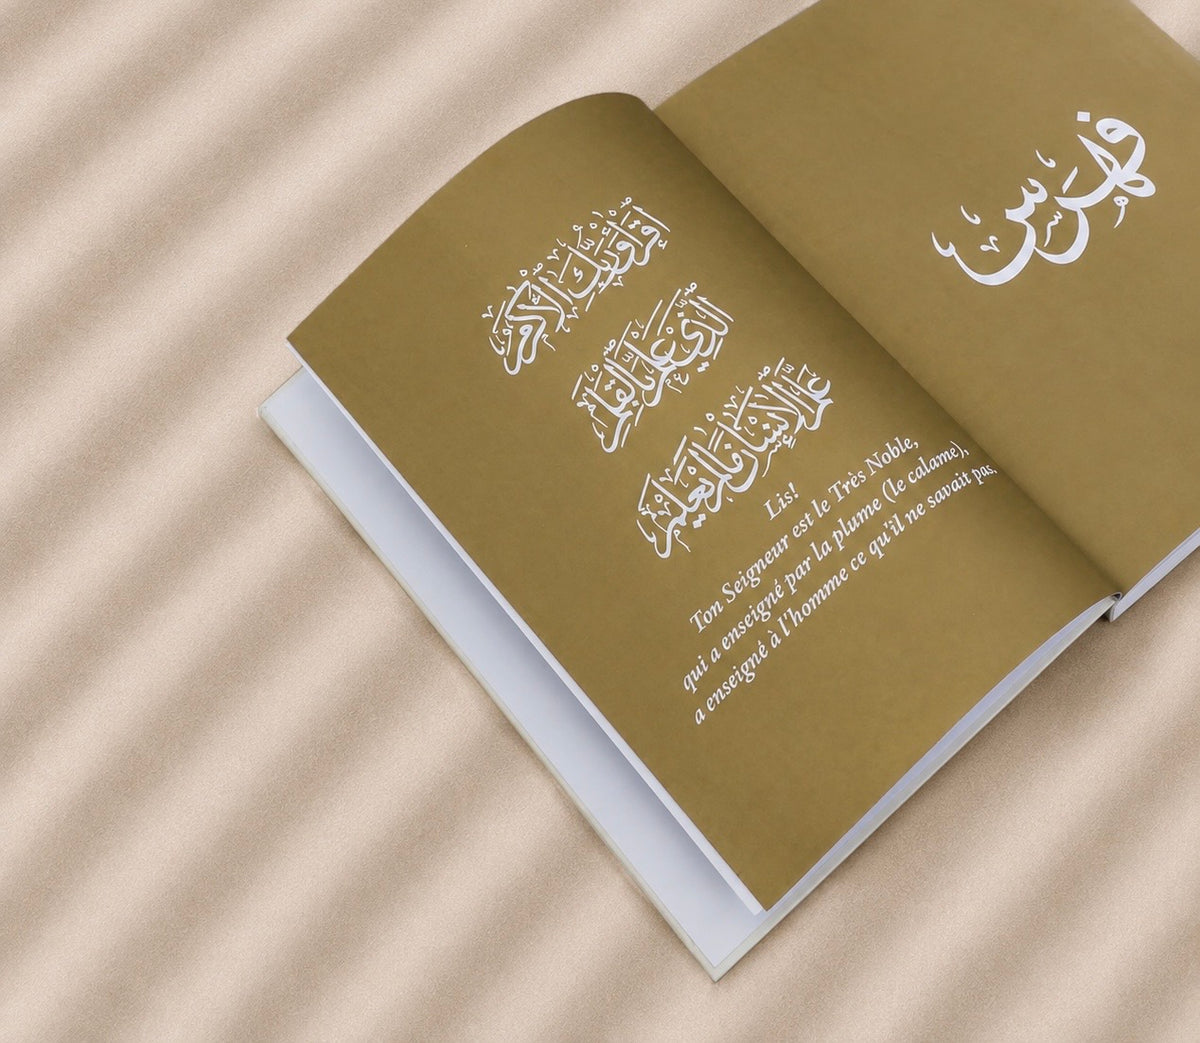 إقرأ وربك الأكرم
الذي علم بالقلم
علم الإنسان ما لم يعلم
Lis!
Ton Seigneur est le Très Noble,
qui a enseigné par la plume (le calame),
a enseigné à l'homme ce qu'il ne savait pas.
فهرس